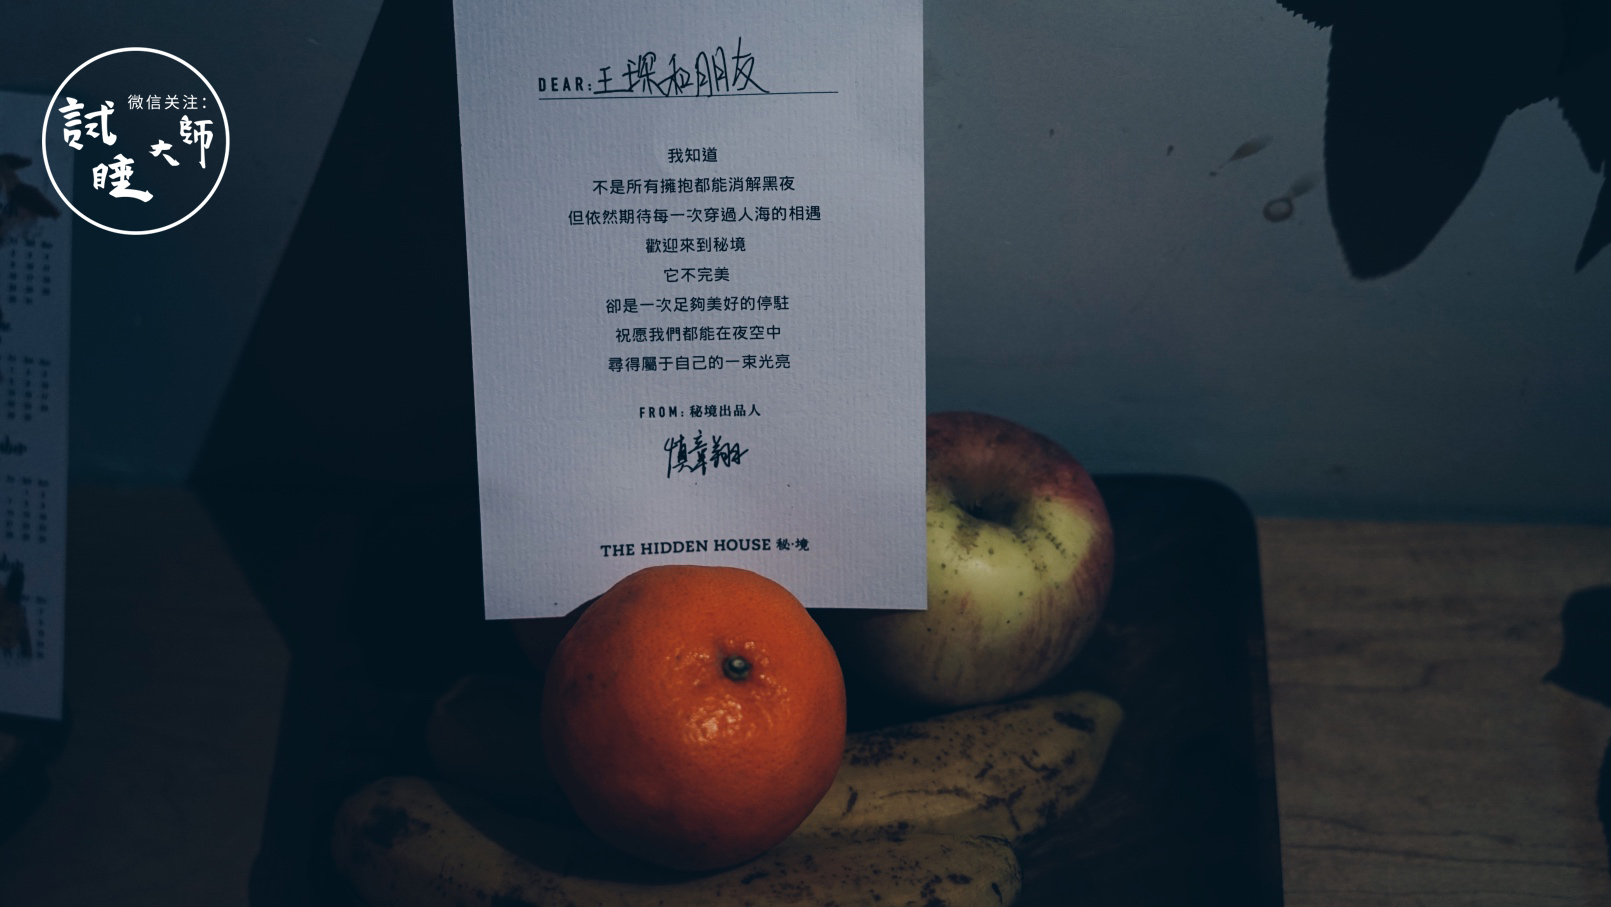 微信关注：
試睡大師
DEAR: 王琛和朋友
我知道
不是所有擁抱都能消解黑夜
但依然期待每一次穿過人海的相遇
歡迎來到秘境
它不完美
卻是一次足夠美好的停駐
祝愿我們都能在夜空中
尋得屬于自己的一束光亮
FROM: 秘境出品人
THE HIDDEN HOUSE 秘·境